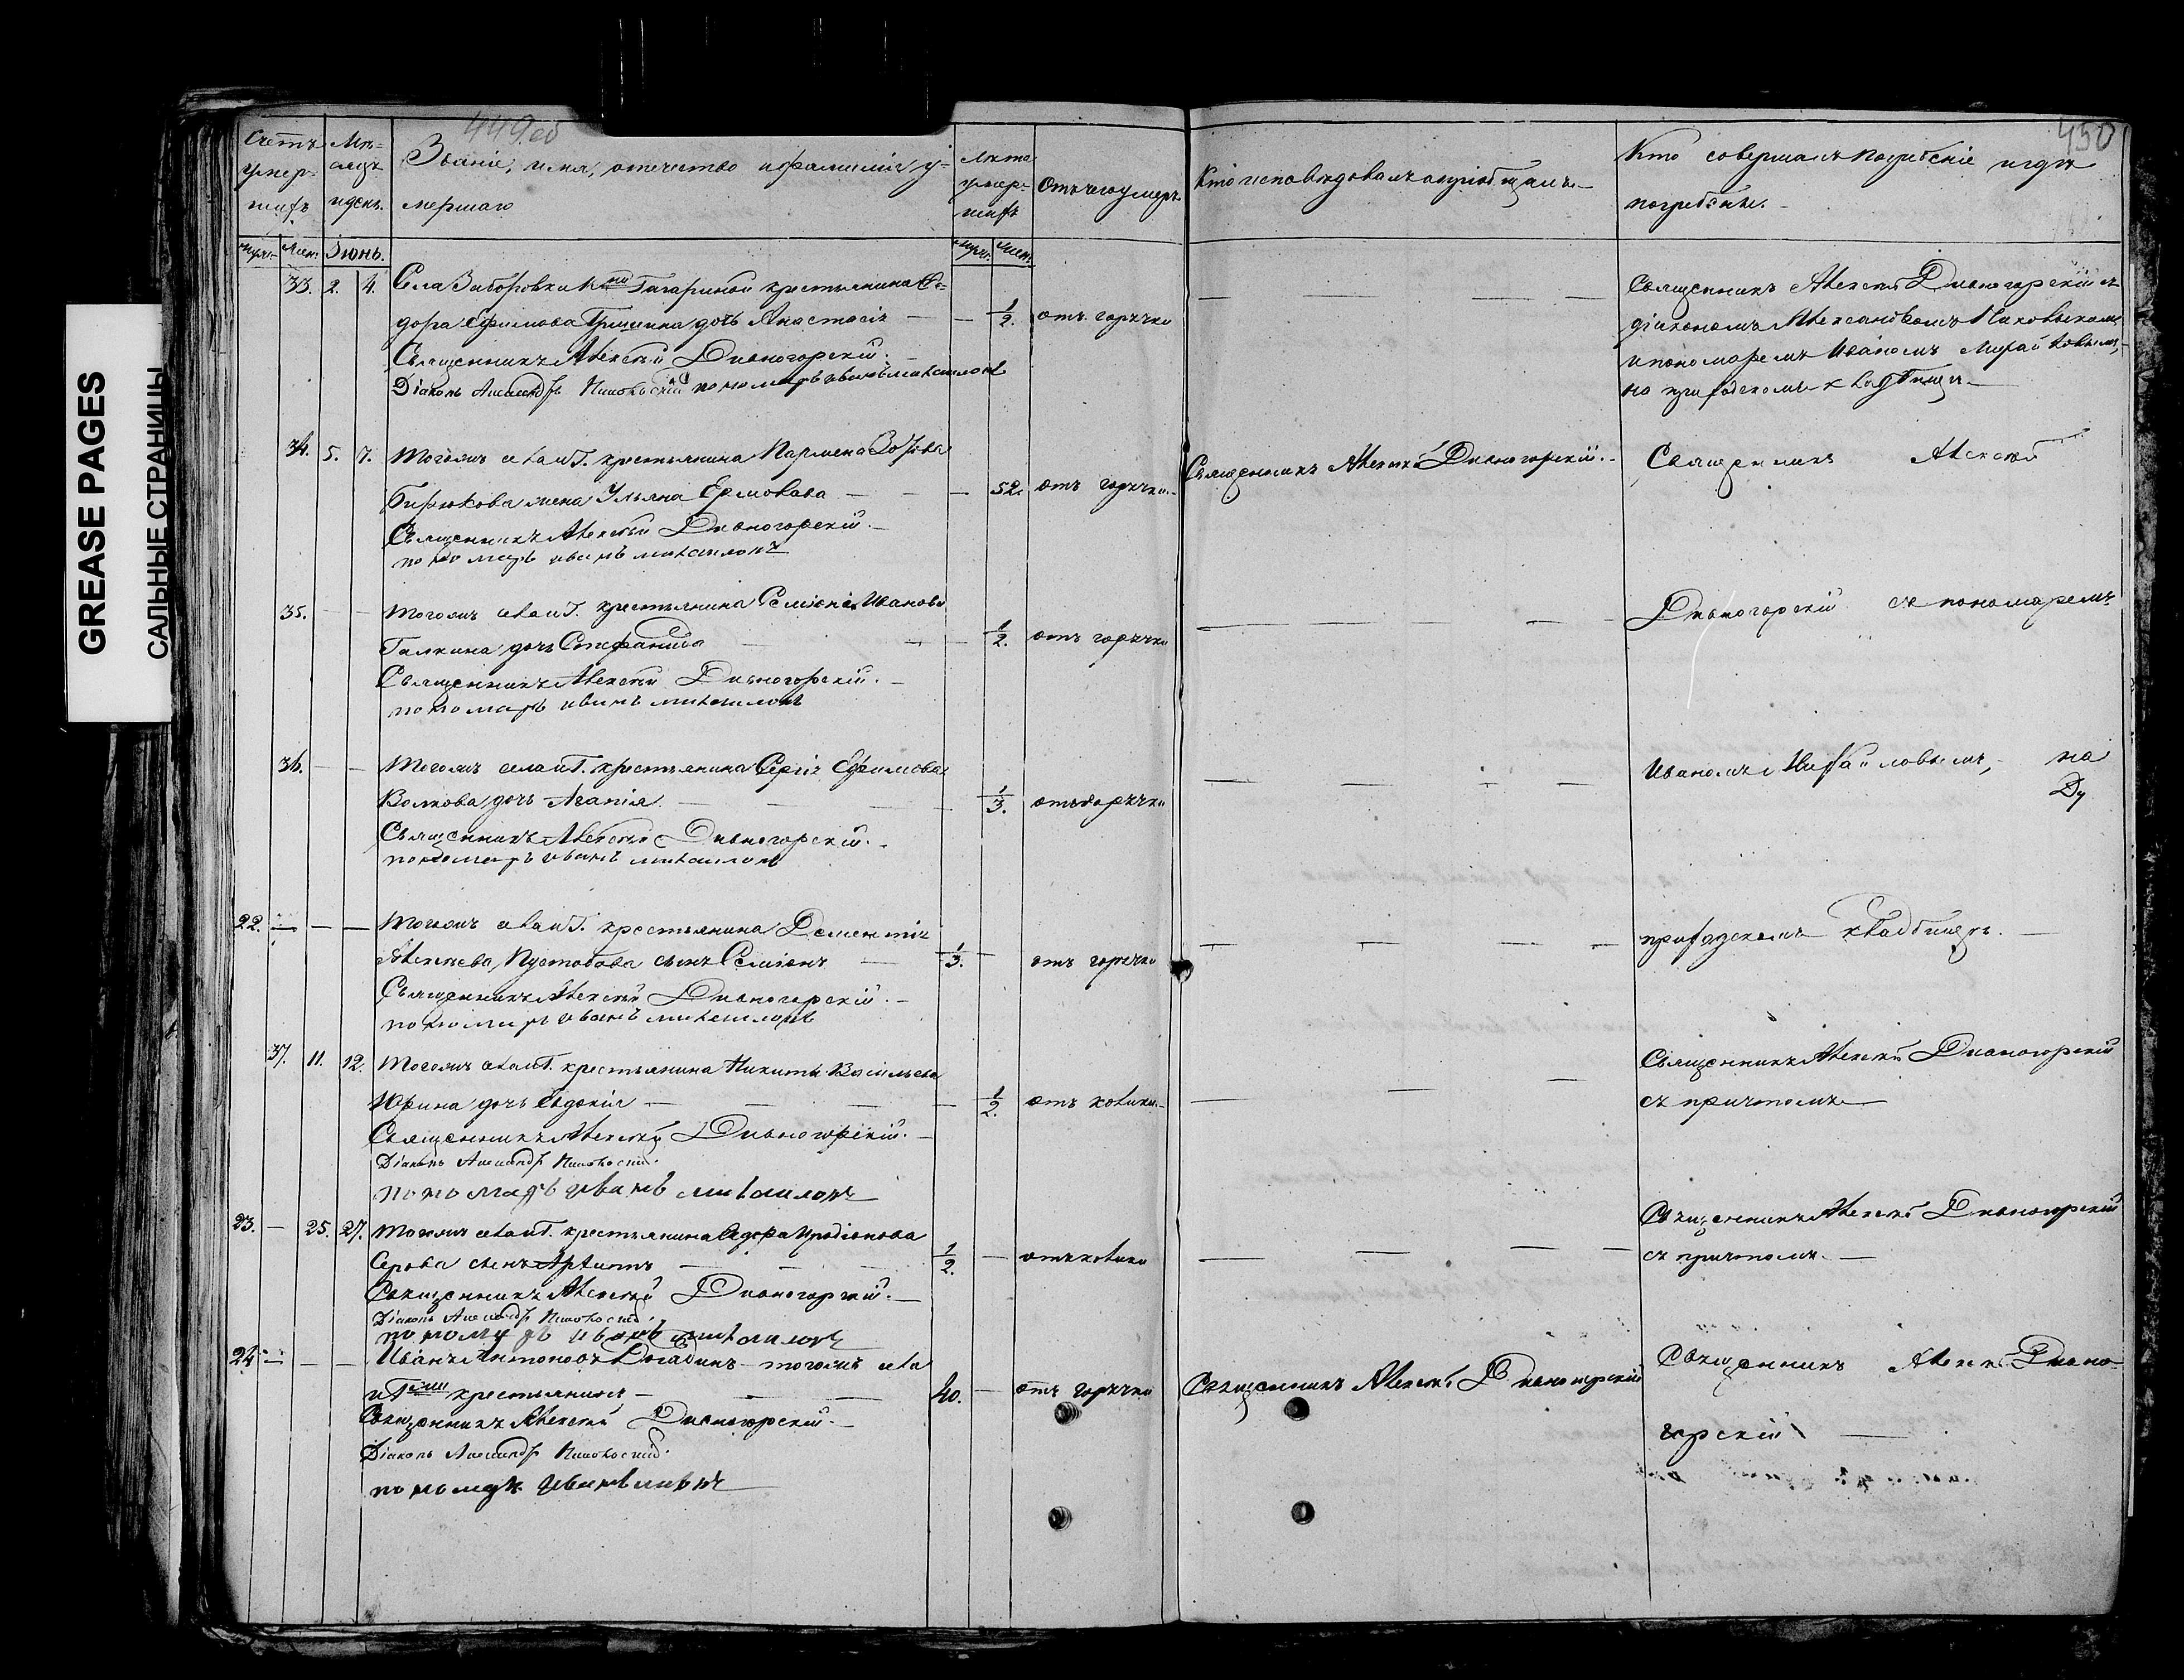 GREASE PAGES
САЛЬНЫЕ СТРАНИЦЫ
449 об
450
Счетъ умер- шихъ
Мѣ- сяцъ и день.
Званіе, имя, отчество и фамилія у-
мершаго
Лѣта умер- шихъ
Отъ чего умеръ
Кто исповѣдовалъ и пріобщалъ.
Кто совершалъ погребеніе и гдѣ
погребены.
муж. жен. Іюнь.
муж. жен.
33. 2. 4. Села Заборовки К Гагариной крестьянина Ѳе-
дора Ефимова Гришина дочь Анастасія — — 1/2. отъ горячки
Священникъ Алексѣй Дивногорскій.
Діаконъ Александръ пономарь иванъ михаиловъ
Священникъ Алексѣй Дивногорскій съ
діакономъ Александромъ
и пономаремъ Иваномъ Михайловымъ,
на приходскомъ кладбищѣ.
34. 5. 7. Тогожъ села и Г. крестьянина Пармена
Бирюкова жена Ульяна Ермолова — — 52. отъ горячки.
Священникъ Алексѣй Дивногорскій.
пономарь иванъ михаиловъ
Священникъ Алексѣй Дивногорскій.
Священникъ Алексѣй
35. — — Тогожъ села и Г. крестьянина Семіона Иванова
Галкина дочь Стефанида — 1/2. отъ горячки
Священникъ Алексѣй Дивногорскій.
пономарь иванъ михаиловъ
Дивногорскій съ пономаремъ
36. — — Тогожъ села и Г. крестьянина Сергія Ефимова
Волкова дочь Агапія. — 1/3. отъ горячки
Священникъ Алексѣй Дивногорскій.
пономарь иванъ михаиловъ
Иваномъ Михайловымъ, на
22. — — — Тогожъ села и Г. крестьянина Дементія
Алексѣева Пустобова сынъ Семіонъ — 1/3. — отъ горячки
Священникъ Алексѣй Дивногорскій.
пономарь иванъ михаиловъ
приходскомъ кладбищѣ. —
37. 11. 12. Тогожъ села и Г. крестьянина Никиты Васильева
Юрина дочь Евдокія — — 1/2. отъ колики.
Священникъ Алексѣй Дивногорскій.
Діаконъ Александръ
пономарь иванъ михаиловъ
Священникъ Алексѣй Дивногорскій
съ причтомъ
23. — 25. 27. Тогожъ села и Г. крестьянина Ѳедора Иродіонова
Серова сынъ — 1/2. — отъ колики
Священникъ Алексѣй Дивногорскій.
Діаконъ Александръ
пономарь иванъ михаиловъ
Священникъ Алексѣй Дивногорскій
съ причтомъ. —
24. — — — Иванъ Антоновъ тогожъ села
и Г крестьянинъ — 40. — отъ горячки
Священникъ Алексѣй Дивногорскій.
Діаконъ Александръ
пономарь иванъ
Священникъ Алексѣй Дивногорскій
Священникъ Алексѣй Дивно-
горскій —